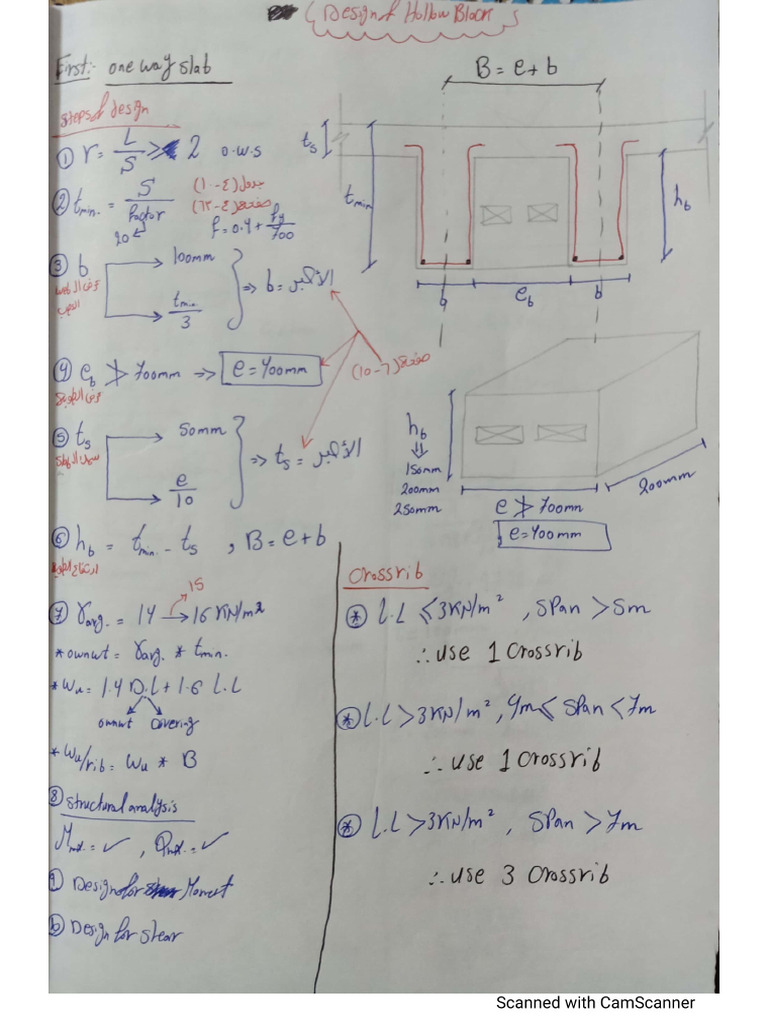 Design of Hollow Block
First:- one way slab
Steps of design
① r = L/S ≥ 2 o.w.s
② tmin. = S/Factor
20
جدول (٤-١٠)
صفحة (٤-٦٣)
f = 0.4 + fy/700
③ b → 100mm
→ tmin./3
⇒ b = الأكبر
④ eb ≯ 700mm ⇒ e = 400mm
صفحة (٦-١٥)
⑤ ts → 50mm
→ e/10
⇒ ts = الأكبر
⑥ hb = tmin. - ts , B = e + b
⑦ γavg. = 14 → 16 KN/m²
15
* ownwt = γavg. * tmin.
* Wu = 1.4 D.L + 1.6 L.L
ownwt covering
* Wu/rib = Wu * B
⑧ Structural analysis
Mult. = ✓ , Qult. = ✓
⑨ Design for Moment
⑩ Design for shear
B = e + b
ts
tmin
hb
b eb b
hb
⇓
150mm
200mm
250mm
e ≯ 700mm
e = 400mm
200mm
Crossrib
* L.L ≤ 3KN/m² , Span > 5m
∴ use 1 Crossrib
* L.L > 3KN/m² , 4m ≤ Span < 7m
∴ use 1 Crossrib
* L.L > 3KN/m² , Span > 7m
∴ use 3 Crossrib
Scanned with CamScanner